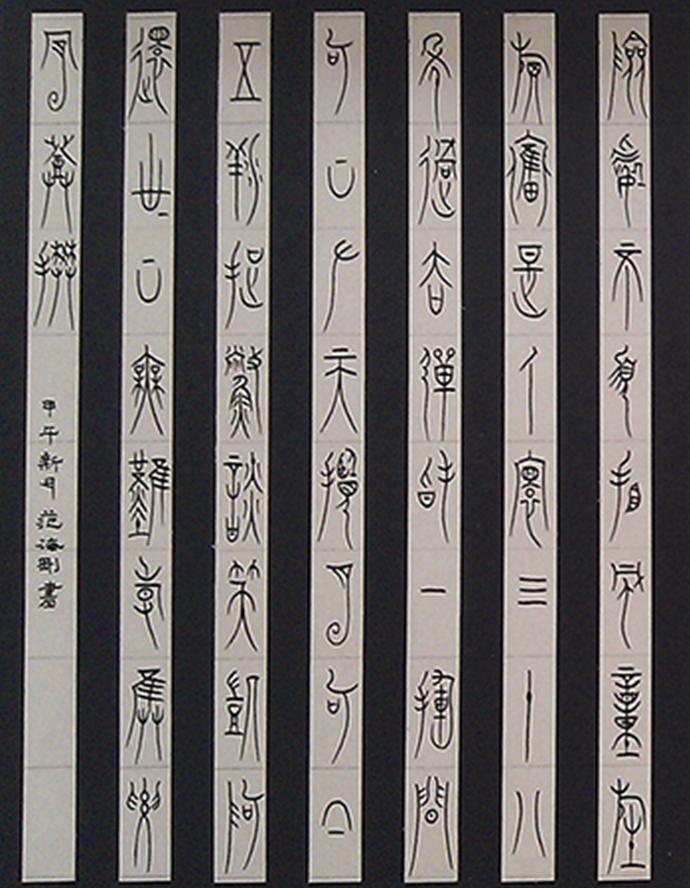 險處不須看動旌
旗奮是人寰三十八
年過去彈指一揮間
可上九天攬月可下
五洋捉鱉談笑凱歌
還世上無難事隻要
肯登攀
甲午新月范海剛書